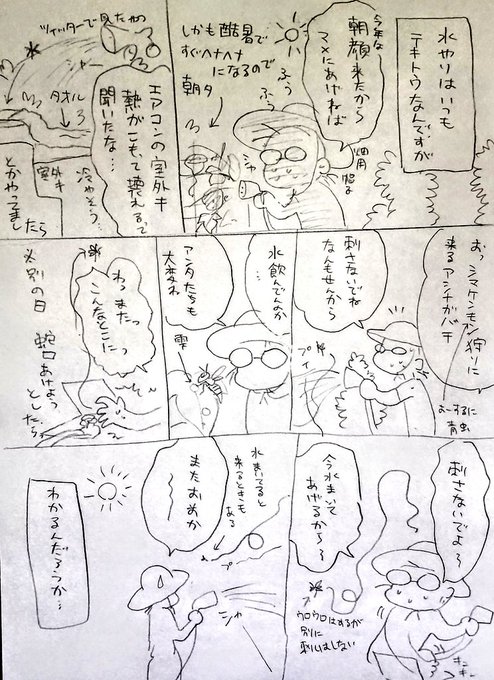 水やりはいつも
テキトウなんですが
今年は
朝顔来たから
マメにあげねば
ふぅ
ふぅ
しかも酷暑で
すぐヘナヘナ
になるので
朝夕
シャー
ツイッターで見たやつ
シャー
タオル
エアコンの室外キ
熱がこもって壊れるって
聞いたな…
冷やそう…
室外キ
とかやってまし
たら
おっシマケンモン狩りに
来るアシナガバチ
よーするに
青虫
刺さないでね
なんもせんから
プイ
水飲んでんのか
…
アンタたちも
大変ね
雫
わっまたっ
こんなとこにっ
別の日
蛇口あけよっ
としたら
刺さないでよ〜
キュ
キュー
今水まいて
あげるから〜
ウロウロはするが
別に
刺しはしない
水まいてると
来るときも
ある
プ
またおめか
〜
シャー
わかるんだろうか…